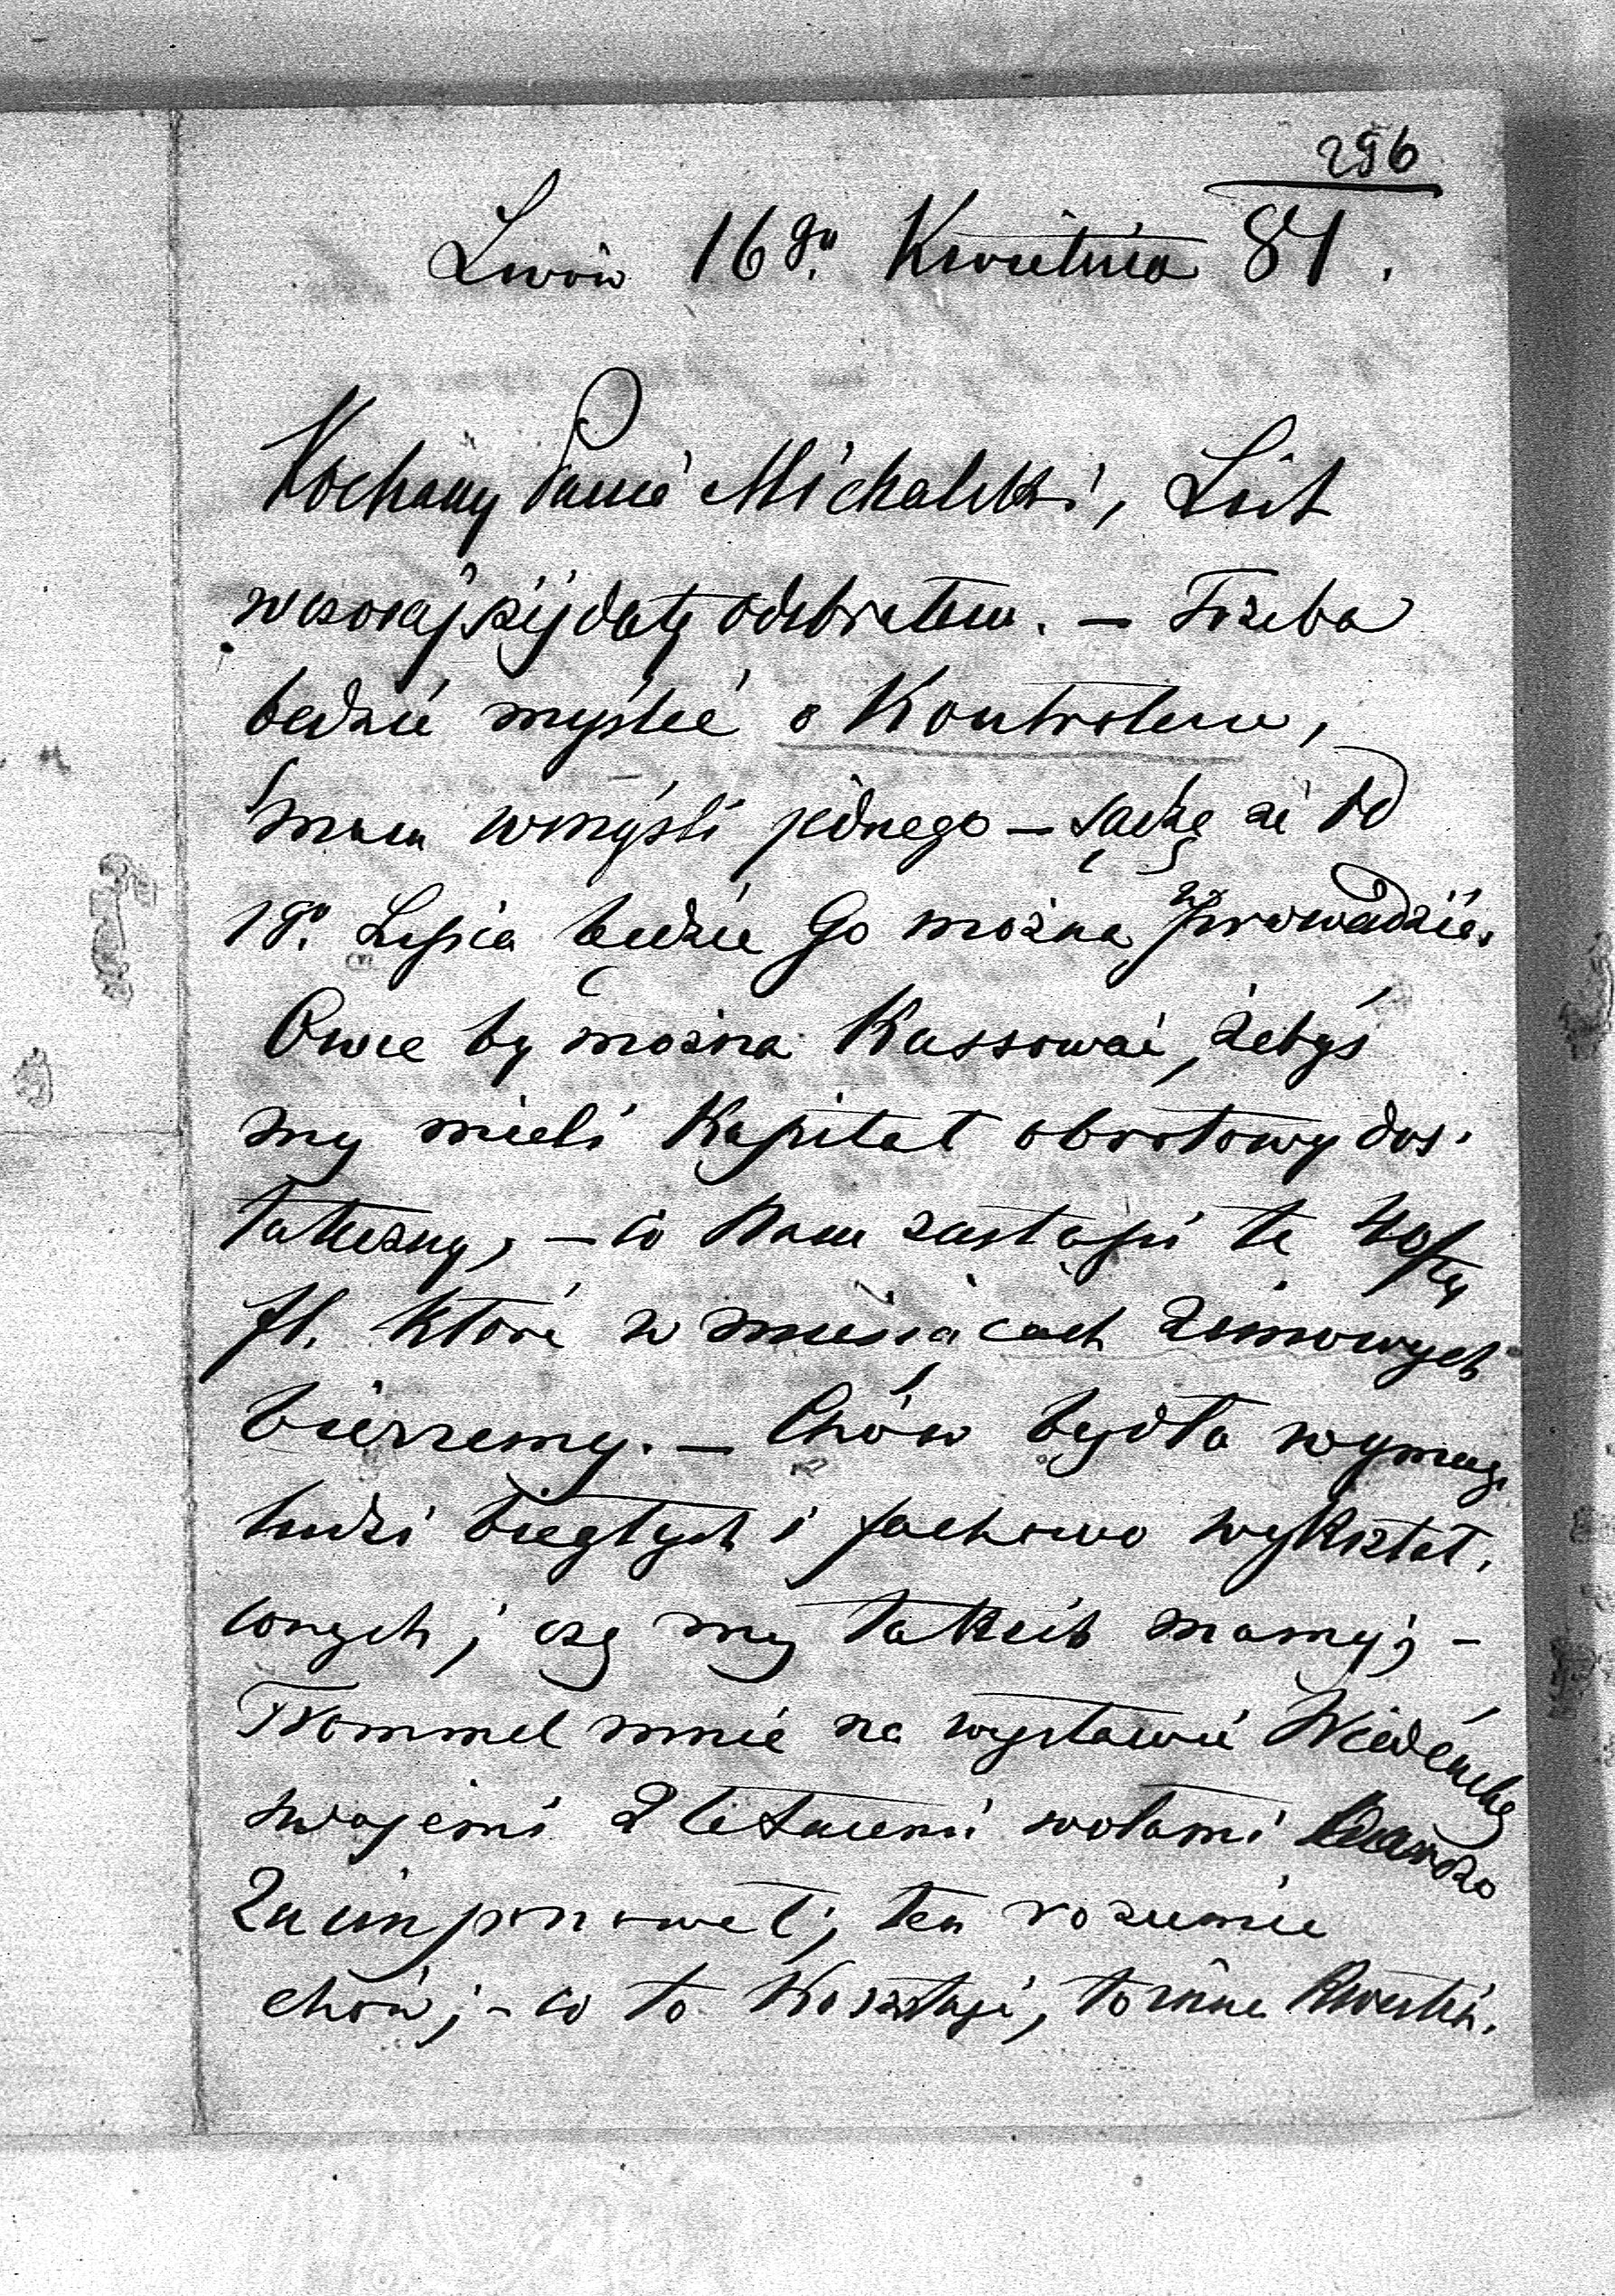 296
Lwów 16go Kwietnia 81.
Kochany Panie Michalski, List
wczorajszej daty odebrałem. — Trzeba
będzie myśleć o Kontrolerze,
mam w myśli jednego — sądzę że od
1go Lipca będzie Go można zaprowadzić.
Owce by można Kassować, żebyś
my mieli Kapitał obrotowy dos.
tateczny, — co Nam zastąpi te
fl. które w miesiącach zimowych
bierzemy. — Chów bydła wymaga
ludzi biegłych i fachowo wykształ.
conych; czy my takich mamy; —
Trommel mnie na wystawie Wiedeńskiej
swojemi 2 letniemi wołami bardzo
zaimponował; ten rozumie
chów; — co to Kosztuje, to inna Kwestia.